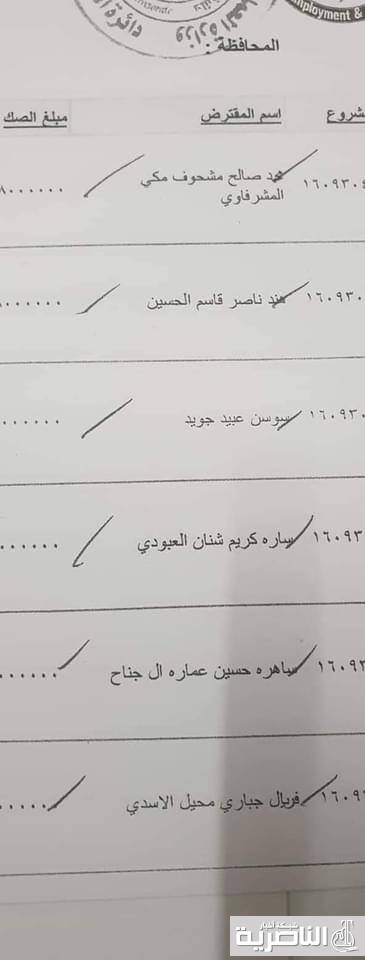 mployment &
دائرة
وزارة
المحافظة :
شروع اسم المقترض مبلغ الصك
١٦٠٩٣٠٤ محمد صالح مشحوف مكي ٨٠٠٠٠٠٠
المشرفاوي
١٦٠٩٣٠ هند ناصر قاسم الحسين ٠٠٠٠٠٠
١٦٠٩٣٠ سوسن عبيد جويد ٠٠٠٠٠٠
١٦٠٩٣ ساره كريم شنان العبودي ٠٠٠٠٠٠
١٦٠٩٣ ساهره حسين عماره ال جناح ٠٠٠٠٠٠
١٦٠٩٣ فريال جباري محيل الاسدي ٠٠٠٠٠
شبكة أخبار
الناصرية